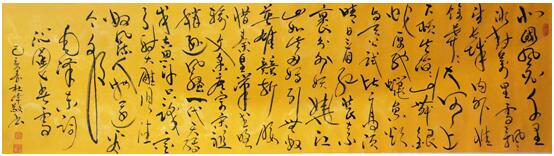 北国风光千里
冰封万里雪飘望
长城内外惟
余莽莽大河上
下顿失滔滔山舞银
蛇原驰蜡象欲
与天公试比高须
晴日看红装素
裹分外妖娆江
山如此多娇引无数
英雄竞折腰
惜秦皇汉武
略输文采唐宗宋祖
稍逊风骚一代天骄
成吉思汗只识弯
弓射大雕俱往矣
数风流人物还看
今朝
毛泽东词
沁园春雪
己丑春